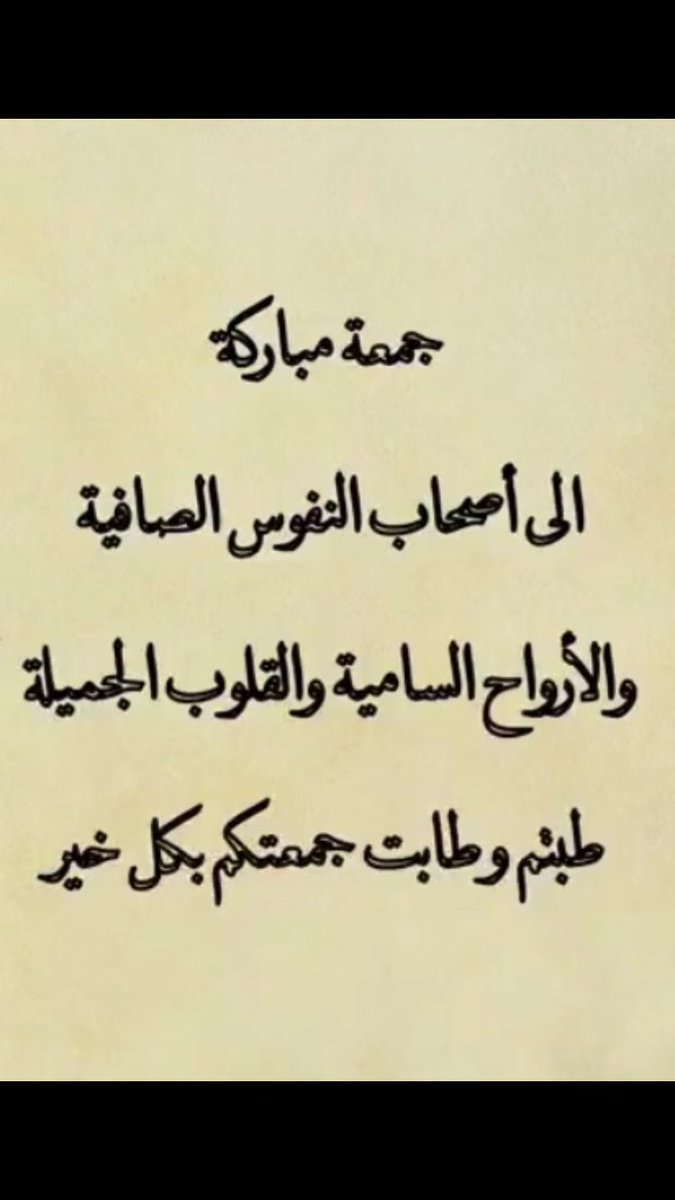 جمعة مباركة
الى أصحاب النفوس الصافية
والأرواح السامية والقلوب الجميلة
طبتم وطابت جمعتكم بكل خير